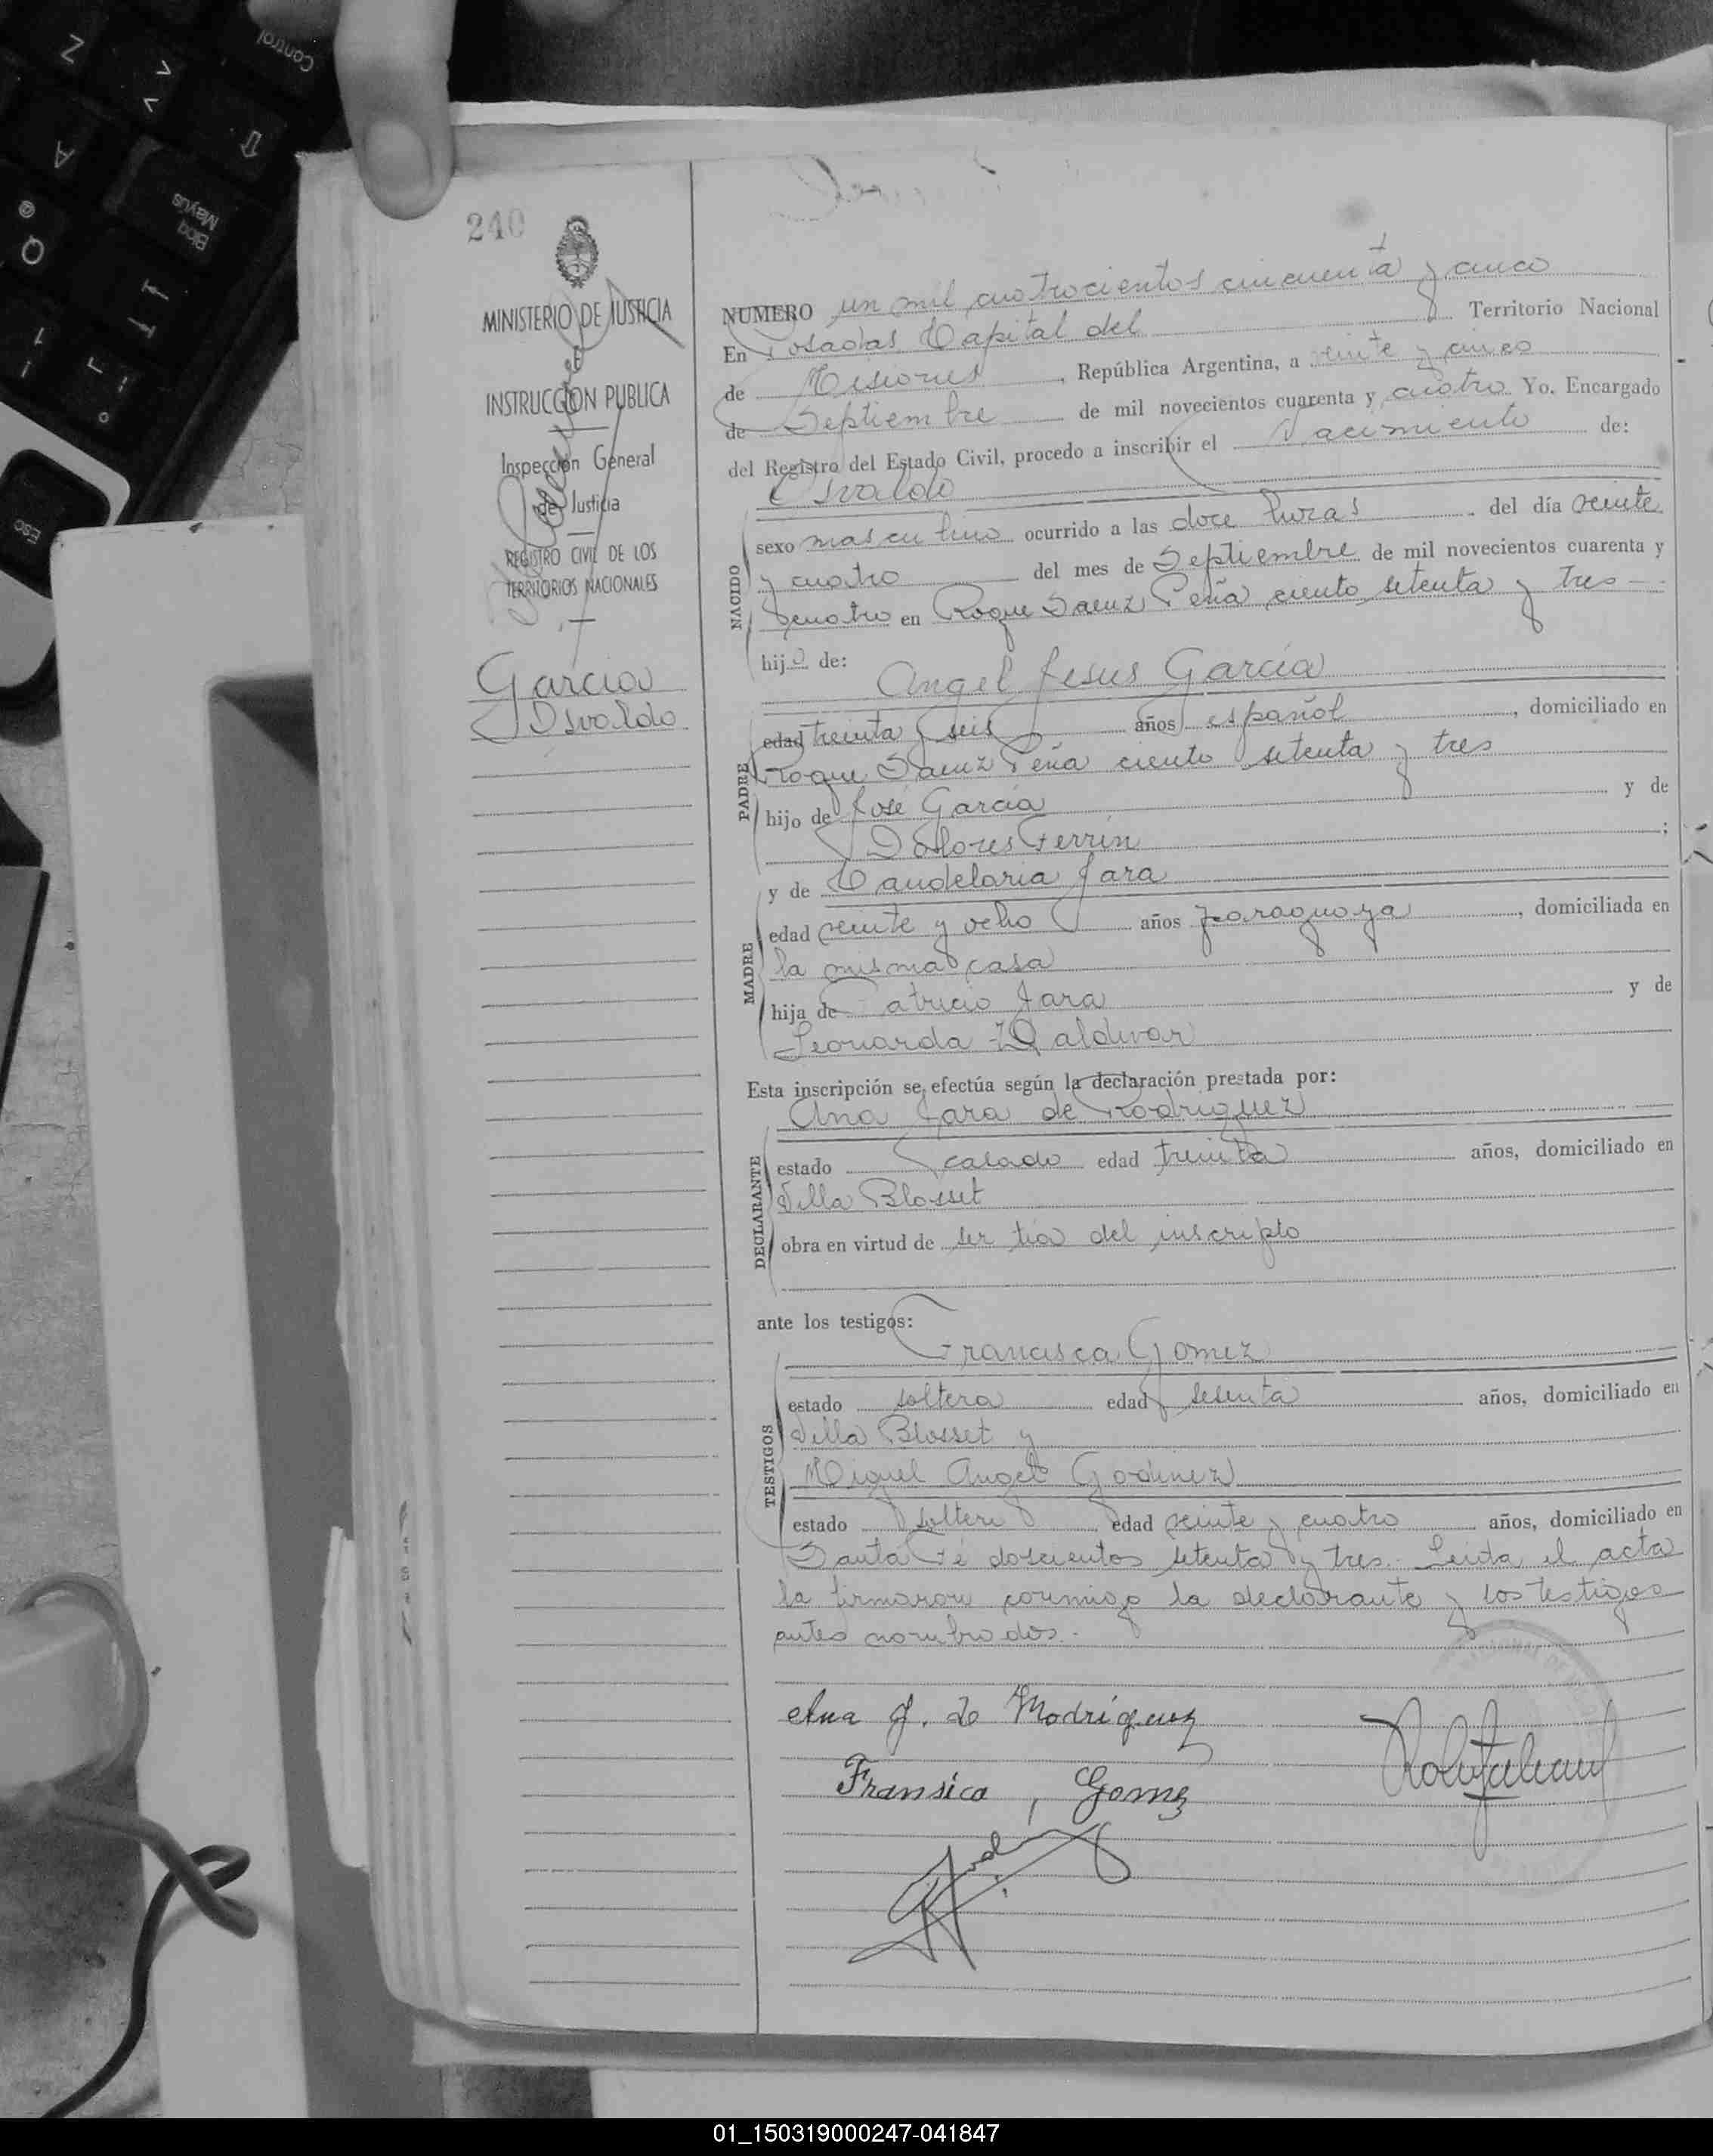 Control
Z
A
Bloq
Mayús
@
Q
Esc
240
MINISTERIO DE JUSTICIA
INSTRUCCION PUBLICA
Inspección General
de Justicia
REGISTRO CIVIL DE LOS
TERRITORIOS NACIONALES
Garcia
Osvaldo
NUMERO un mil cuatrocientos cincuenta y cinco
En Posadas Capital del Territorio Nacional
de Misiones, República Argentina, a veinte y cinco
de Septiembre de mil novecientos cuarenta y cuatro Yo, Encargado
del Registro del Estado Civil, procedo a inscribir el Nacimiento de:
Osvaldo
NACIDO
sexo masculino ocurrido a las doce horas del día veinte
y cuatro del mes de Septiembre de mil novecientos cuarenta y
cuatro en Roque Saenz Peña ciento setenta y tres
hijo de:
Angel Jesus García
PADRE
edad treinta y seis años español, domiciliado en
Roque Saenz Peña ciento setenta y tres
hijo de José García y de
Dolores Ferrin;
y de Candelaria Jara
MADRE
edad veinte y ocho años paraguaya, domiciliada en
la misma casa
hija de Patricio Jara y de
Leonarda Zaldivar
Esta inscripción se efectúa según la declaración prestada por:
Ana Jara de Rodriguez
DECLARANTE
estado casado edad treinta años, domiciliado en
Villa Blosset
obra en virtud de ser tia del inscripto
ante los testigos:
Francisca Gomez
TESTIGOS
estado soltera edad sesenta años, domiciliado en
Villa Blosset y
Miguel Angel Godinez
estado soltero edad veinte y cuatro años, domiciliado en
Santa Fé doscientos setenta y tres.- Leida el acta
la firmaron conmigo la declarante y los testigos
antes nombrados.-
Ana J. de Rodriguez
Fransica, Gomez
01_150319000247-041847